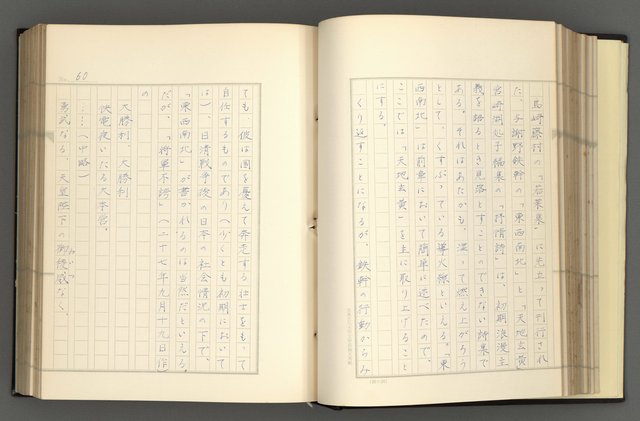 島崎藤村の「若菜集」に先立って刊行され
た、与謝野鉄幹の「東西南北」と「天地玄黄」
宮崎湖処子編集の「抒情詩」は、初期浪漫主
義を語るとき見落とすことのできない詩集で
ある。それはあたかも、湿って燃え上がろう
として、くすぶっている導火線といえる。「東
西南北」は前章において簡単に述べたので、
ここでは「天地玄黄」を主に取り上げること
にする。
くり返すことになるが、鉄幹の行動からみ
No. 60
ても、彼は国を憂えて奔走する壮士をもって
自任するものであり(少くとも初期において
は)、日清戦争後の日本の社会情況の下で、
「東西南北」が書かれるのは当然だといえる。
だが、「将軍不誇」(二十七年九月十九日作)
の
大勝利、大勝利
快電夜いたる大本営。
……(中略)
勇武なる、天皇陛下の御稜威なく、
みいつ